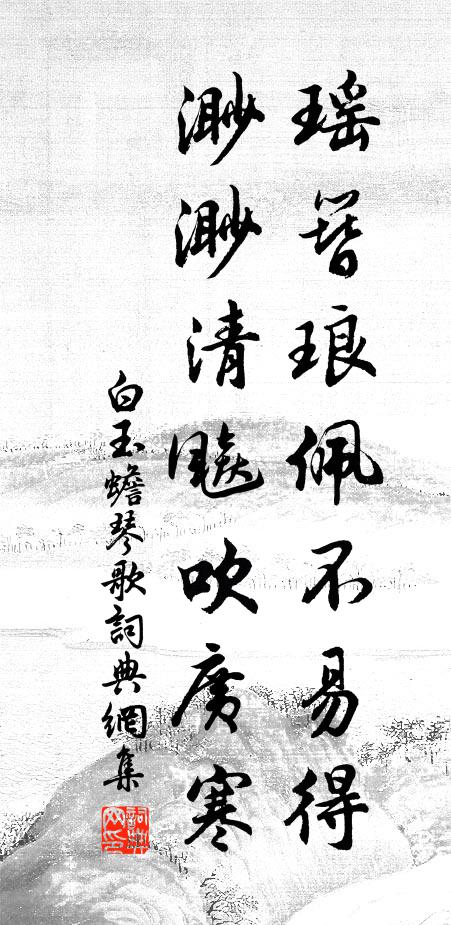 瑶簪琅佩不易得
渺渺清飚吹廣寒
白玉蟾琴歌詞典網集